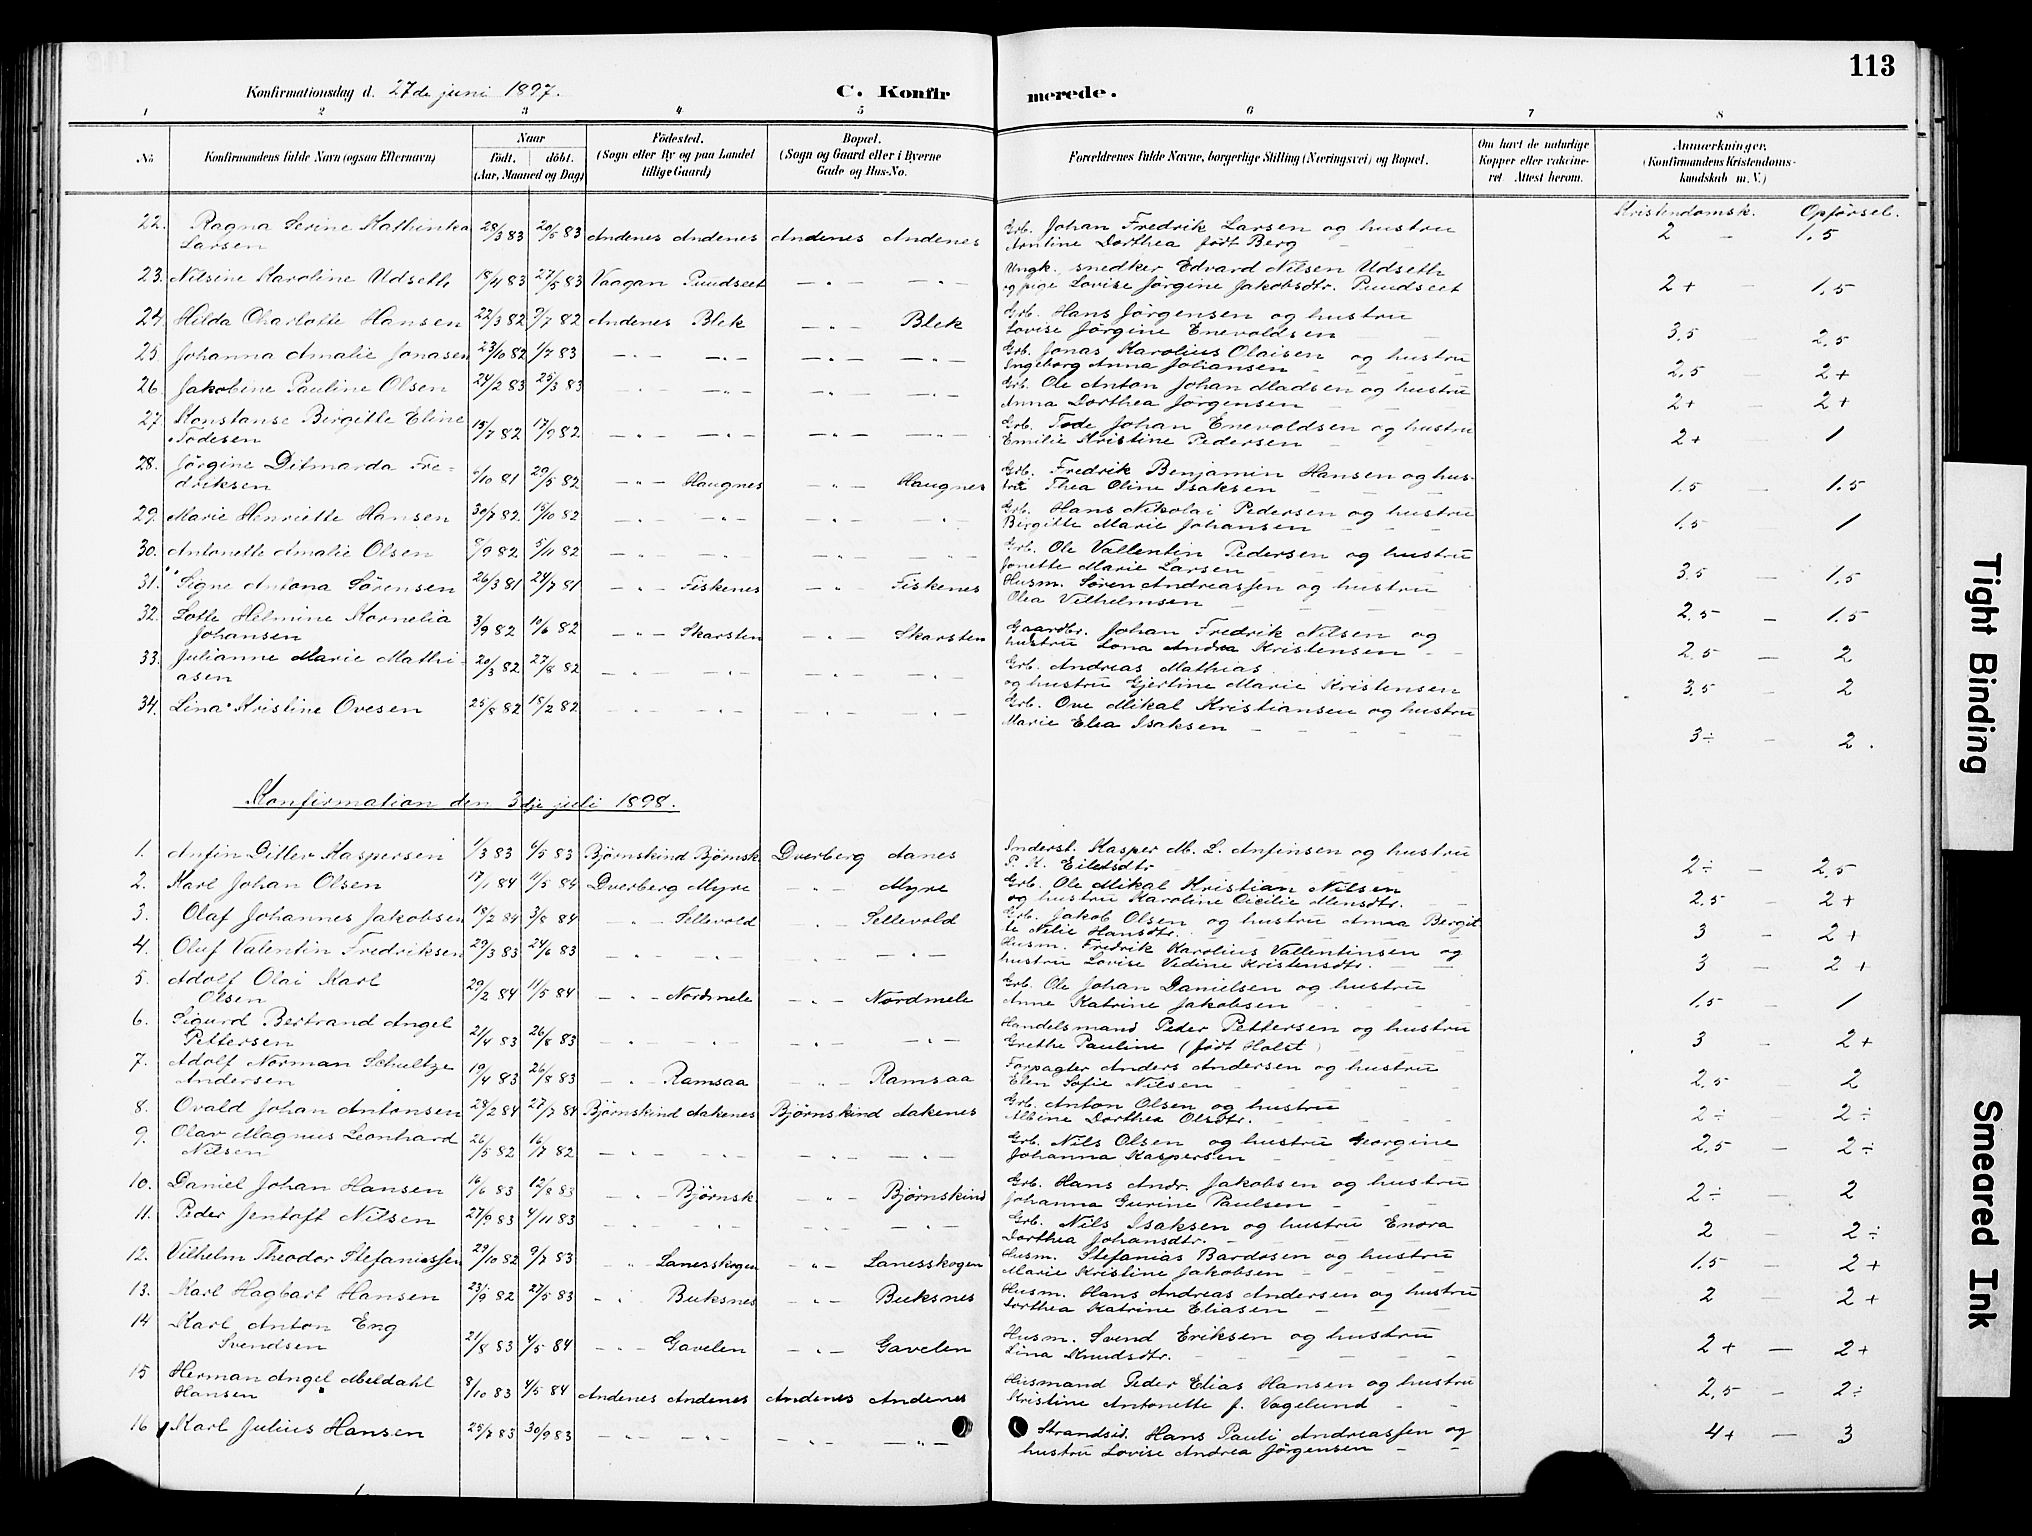 113
Konfirmationsdag d. 27de juni 1897.
C. Konfir
merede.
1 2 3 4 5 6 7 8
No
Konfirmandens fulde Navn (ogsaa Efternavn)
Naar
født. døbt.
(Aar, Maaned og Dag)
Fødested.
(Sogn eller By og paa Landet
tillige Gaard)
Bopæl.
(Sogn og Gaard eller i Byerne
Gade og Hus-No.
Forældrenes fulde Navne, borgerlige Stilling (Næringsvei) og Bopæl.
Om havt de naturlige
Kopper eller vakcine-
ret Attest herom.
Anmærkninger.
(Konfirmandens Kristendoms-
kundskab m. V.)
Kristendomsk. Opførsel.
22. Ragna Serine Kathinka 28/3 83 20/5 83 Andenes Andenes Andenes Andenes Grb. Johan Fredrik Larsen og hustru 2 – 1.5
Larsen Arntine Dorthea født Berg
23. Nilsine Karoline Udseth 18/4 83 27/5 83 Vaagan Puudseet – „ – – „ – Ungk. snedker Edvard Nilsen Udseth 2+ – 1.5
og pige Lovise Jørgine Jakobsdtr. Puudseet
24. Hilda Charlotte Hansen 22/3 82 9/7 82 Andenes Blek – „ – Blek Grb. Hans Jørgensen og hustru 3.5 – 2.5
Lovise Jørgine Enevoldsen
25. Johanna Amalie Jonasen 23/10 82 1/7 83 – „ – – „ – – „ – – „ – Grb. Jonas Karolius Olaisen og hustru 2.5 – 2+
Ingeborg Anna Johansen
26. Jakobine Pauline Olsen 24/2 83 25/3 83 – „ – – „ – – „ – – „ – Grb. Ole Anton Johan Madsen og hustru 2+ – 2+
Anna Dorthea Jørgensen
27. Konstanse Birgitte Eline 15/7 82 17/9 82 – „ – – „ – – „ – – „ – Grb. Tøde Johan Enevoldsen og hustru 2+ – 1
Tødesen Emilie Kristine Pedersen
28. Jørgine Ditmarda Fre- /10 81 29/5 82 – „ – Haugnes – „ – Haugnes Grb. Fredrik Benjamin Hansen og hus- 1.5 – 1.5
driksen tru Thea Oline Isaksen
29. Marie Henriette Hansen 30/7 82 15/10 82 – „ – – „ – – „ – – „ – Grb. Hans Nikolai Pedersen og hustru 1.5 – 1
Birgitte Marie Johansen
30. Antonette Amalie Olsen 8/9 82 5/11 82 – „ – – „ – – „ – – „ – Grb. Ole Vallentin Pedersen og hustru 3.5 – 1.5
Jonette Marie Larsen
31. Signe Antona Sørensen 26/3 81 24/7 81 – „ – Fiskenes – „ – Fiskenes Husm. Søren Andreassen og hustru 2.5 – 1.5
Olea Vilhelmsen
32. Lotte Helmine Kornelia 3/9 82 10/6 82 – „ – Skarsten – „ – Skarsten Gaardbr. Johan Fredrik Nilsen og 2.5 – 2
Johansen hustru Lona Andrea Kristensen
33. Julianne Marie Mathi- 20/3 82 27/8 82 – „ – – „ – – „ – – „ – Grb. Andreas Mathias 3.5 – 2
asen og hustru Gjertine Marie Kristensen
34. Lina Kristine Ovesen 25/8 82 18/2 82 – „ – – „ – – „ – – „ – Grb. Ove Mikal Kristiansen og hustru 3÷ – 2.
Marie Elea Isaksen
Konfirmation den 3dje juli 1898.
1. Anfin Ditlev Kaspersen 1/3 83 4/5 83 Bjørnskind Bjørnsk. Dverberg Aanes Inderst. Kasper M. L. Anfinsen og hustru 2÷ – 2.5
P. K. Eilertsdtr
2. Karl Johan Olsen 17/1 84 11/5 84 Dverberg Myre – „ – Myre Grb. Ole Mikal Kristian Nilsen 2.5 – 2+
og hustru Karoline Cicilie Monsdtr.
3. Olaf Johannes Jakobsen 18/2 84 3/8 84 – „ – Sellevold – „ – Sellevold Grb. Jakob Olsen og hustru Anna Bergit- 3 – 2+
te Nelie Hansdtr.
4. Oluf Valentin Fredriksen 29/3 83 24/6 83 – „ – – „ – – „ – – „ – Husm. Fredrik Karolius Vallentinsen og 3 – 2+
hustru Lovise Vedine Kristensdtr.
5. Adolf Olai Karl 29/2 84 11/5 84 – „ – Nordmele – „ – Nordmele Grb. Ole Johan Danielsen og hustru 1.5 – 1
Olsen Anne Katrine Jakobsen
6. Sigurd Bertrand Angel 21/4 83 26/8 83 – „ – – „ – – „ – – „ – Handelsmand Peder Pettersen og hustru 3 – 2+
Pettersen Grethe Pauline (født Holst)
7. Adolf Norman Schultze 19/4 83 26/8 83 – „ – Ramsaa – „ – Ramsaa Forpagter Anders Andersen og hustru 2.5 2
Andersen Elen Sofie Nilsen
8. Ovald Johan Antonsen 28/2 84 27/7 84 Bjørnskind Aakenes Bjørnskind Aakenes Grb. Anton Olsen og hustru 2÷ – 2÷
Albine Dorthea Olsdtr.
9. Olav Magnus Leonhard 26/5 82 16/7 82 – „ – – „ – – „ – – „ – Grb. Nils Olsen og hustru Georgine 2.5 – 2÷
Nilsen Johanna Kaspersen
10. Daniel Johan Hansen 16/6 83 12/8 83 – „ – Bjørnsk. – „ – Bjørnskind Grb. Hans Andr. Jakobsen og hustru 2÷ – 2
Johanna Gurine Paulsen
11. Peder Jentoft Nilsen 27/9 83 4/11 83 – „ – – „ – – „ – – „ – Grb. Nils Isaksen og hustru Enora 2 – 2÷
Dorthea Johansdtr.
12. Vilhelm Theodor Stefaniassen 29/10 82 9/7 83 – „ – Lanesskogen – „ – Lanesskogen Husm. Stefanias Bardosen og hustru 1.5 – 2+
Marie Kristine Jakobsen
13. Karl Hagbart Hansen 23/9 82 27/5 83 – „ – Buksnes – „ – Buksnes Husm. Hans Andreas Andersen og hustru 2 – 2+
Dorthea Katrine Eliasen
14 Karl Anton Eng 21/8 83 4/5 84 – „ – Gavelen – „ – Gavelen Husm. Svend Eriksen og hustru 2+ – 2+
Svendsen Lina Knudsdtr.
15 Herman Angel Meldahl 8/10 83 4/5 84 Andenes Andenes Andenes Andenes Husmand Peder Elias Hansen og hustru 2.5 – 2÷
Hansen Kristine Antonette f. Vagelund
16 Karl Julius Hansen 25/7 83 30/9 83 – „ – – „ – – „ – – „ – Strandsid. Hans Pauli Andreassen og 4+ – 3
hustru Lovise Andrea Jørgensen
Tight Binding
Smeared Ink